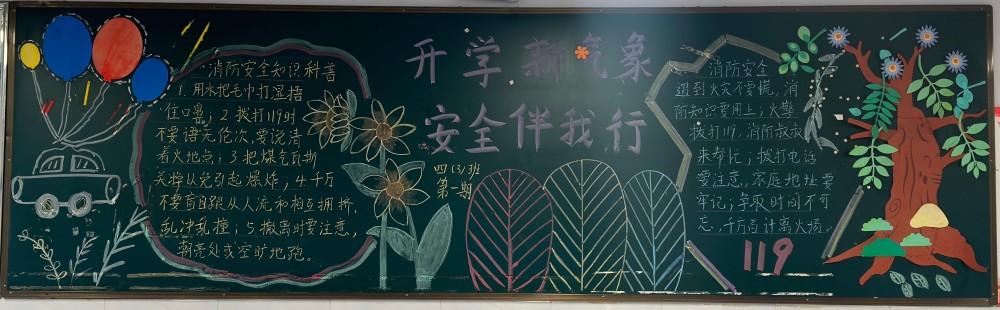 消防安全知识科普
1.用水把毛巾打湿捂
住口鼻；2拨打119时
不要语无伦次,要说清
着火地点；3把煤气瓦斯
关掉以免引起爆炸,4.千万
不要盲目跟从人流和相互拥挤,
乱冲乱撞；5撤离时要注意,
朝亮处或空旷地跑。
开学新气象
安全伴我行
四(3)班
第一期
消防安全
遇到火灾不要慌,消
防知识要用上；火警
拨打119.消防叔叔
来帮忙；拨打电话
要注意,家庭地址要
牢记；争取时间不可
忘,千方百计离火场。
119